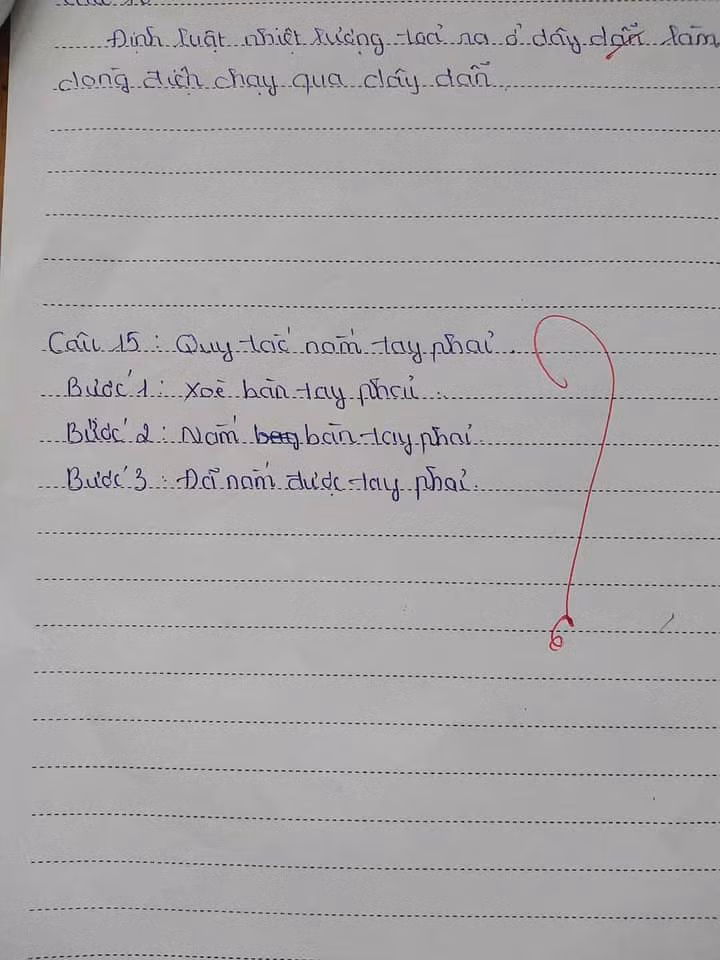 Định luật nhiệt lượng toả ra ở dây dẫn làm
dòng điện chạy qua dây dẫn
Câu 15 : Quy tắc nắm tay phải.
Bước 1 : Xoè bàn tay phải.
Bước 2 : Nắm bàn tay phải.
Bước 3 : Đã nắm được tay phải.